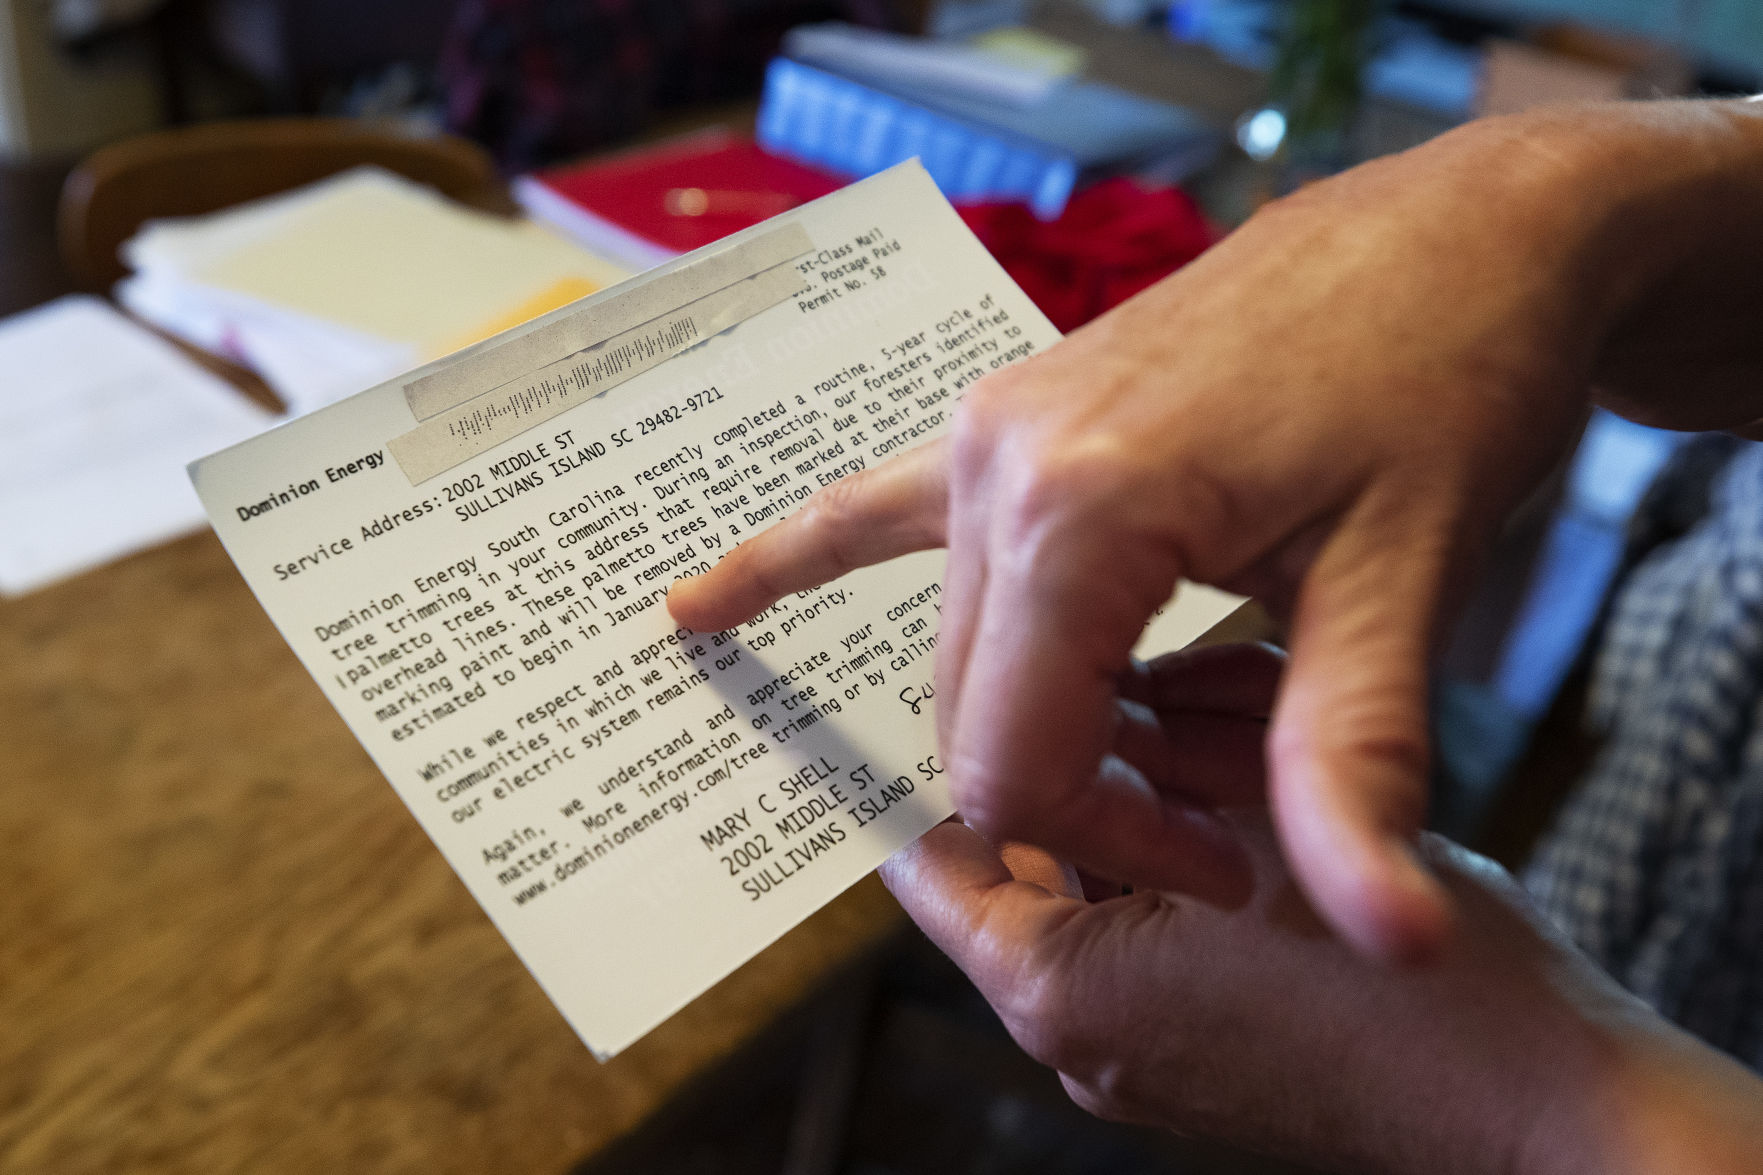 st-Class Mail
Postage Paid
Permit No. 58
Dominion Energy
Service Address: 2002 MIDDLE ST
SULLIVANS ISLAND SC 29482-9721
Dominion Energy South Carolina recently completed a routine, 5-year cycle of
tree trimming in your community. During an inspection, our foresters identified
palmetto trees at this address that require removal due to their proximity to
overhead lines. These palmetto trees have been marked at their base with orange
marking paint and will be removed by a Dominion Energy contractor.
estimated to begin in January 2020
While we respect and appreci
communities in which we live and work, the
our electric system remains our top priority.
Again, we understand and appreciate your concern
matter. More information on tree trimming can
www.dominionenergy.com/tree trimming or by calling
MARY C SHELL
2002 MIDDLE ST
SULLIVANS ISLAND SC